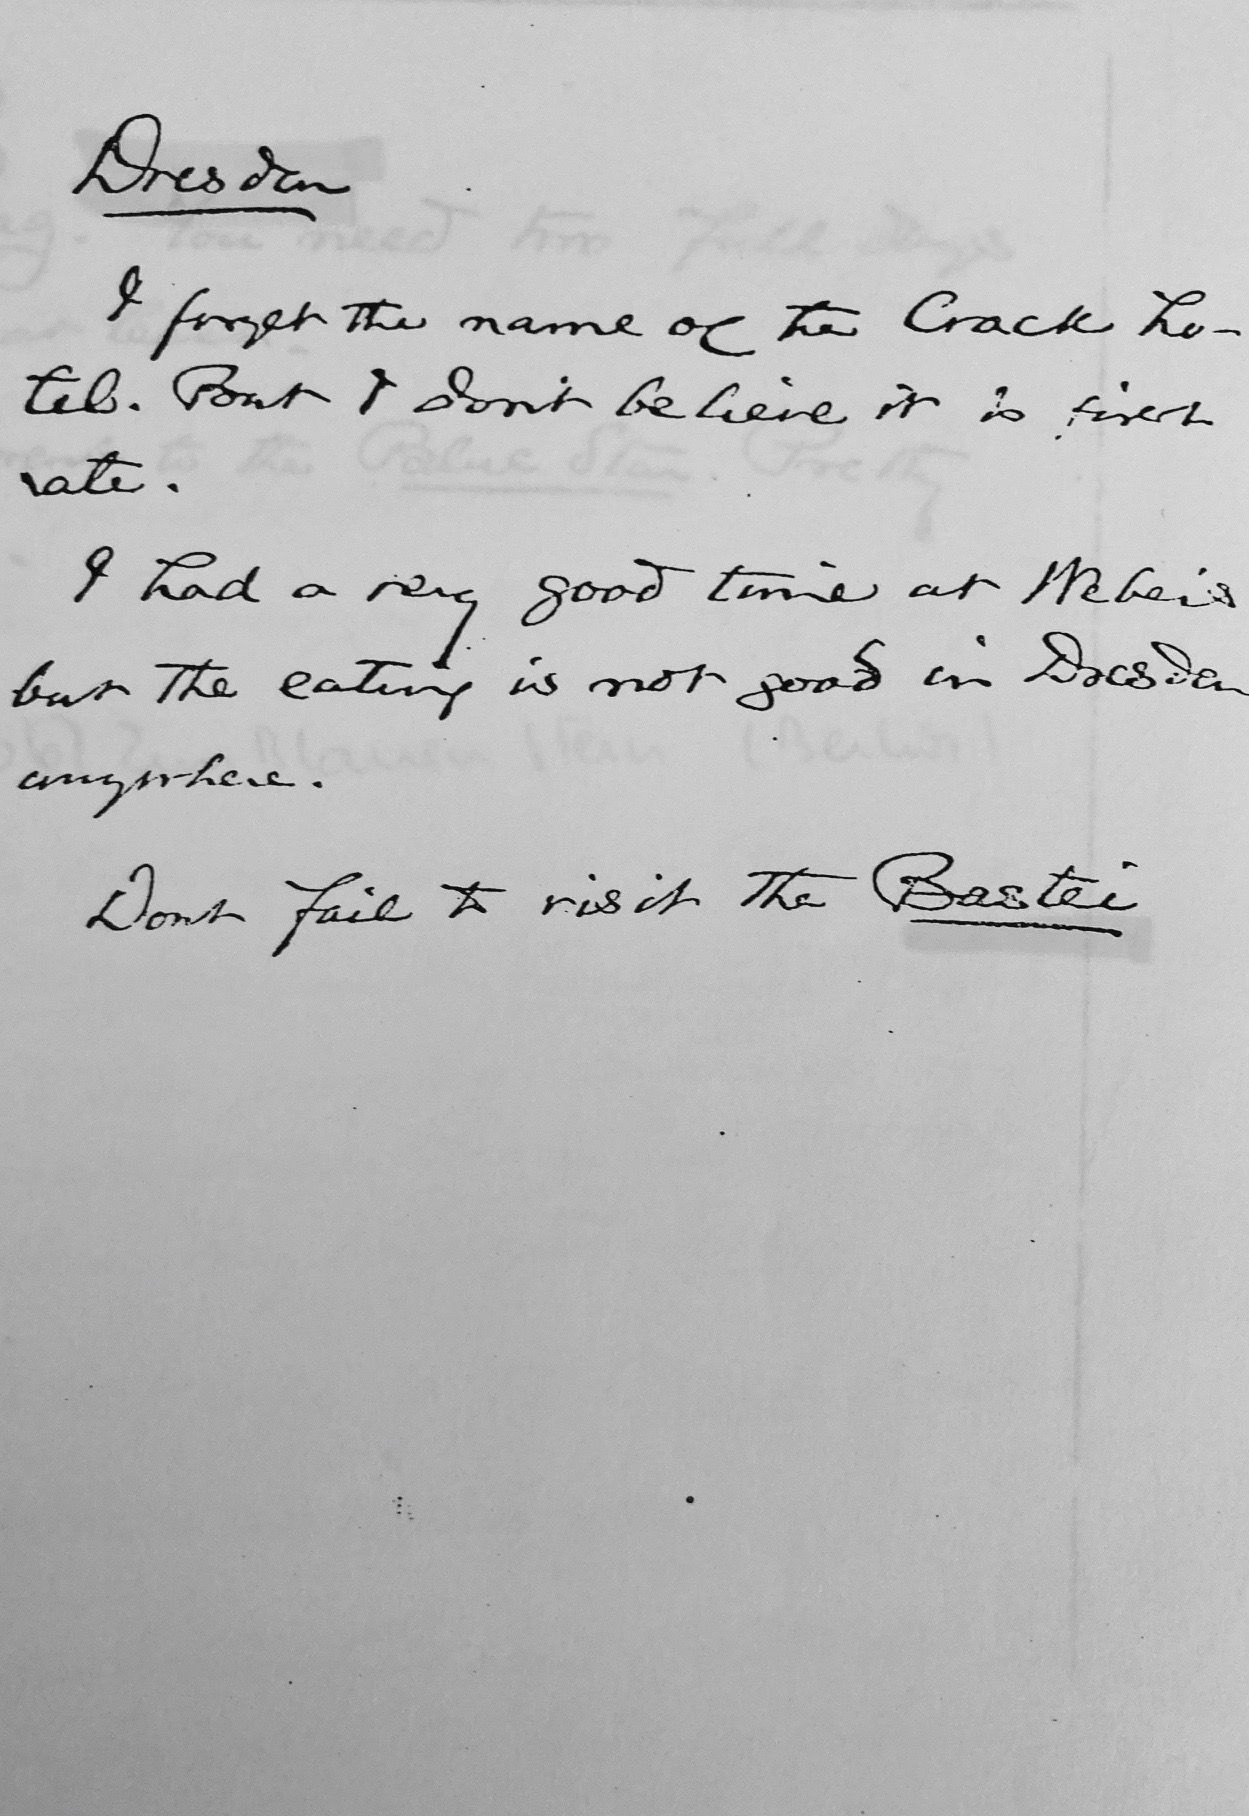 Dresden
I forget the name of the Crack ho-
tel. But I don't believe it is first
rate.
I had a very good time at Webers
but the eating is not good in Dresden
anywhere.
Dont fail to visit the Bastei
You need two full days
to the Blue Star. Pretty